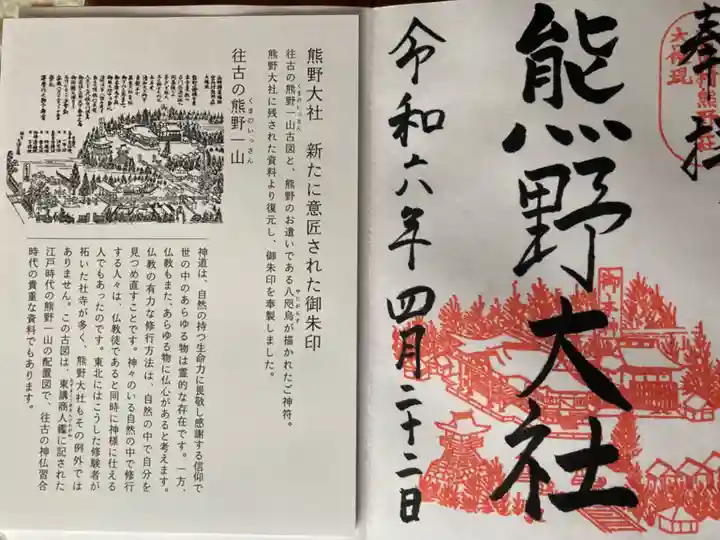 奉拝
熊野大社
令和六年四月二十二日
御本
熊野大社 新たに意匠された御朱印
往古の熊野一山古図と、熊野のお遣いである八咫烏が描かれたご神符。
くまのいっさん
やたがらす
熊野大社に残された資料より復元し、御朱印を奉製しました。
往古の熊野一山
くまのいっさん
神道は、自然の持つ生命力に畏敬し感謝する信仰で
世の中のあらゆる物は霊的な存在です。一方、
仏教もまた、あらゆる物に仏心があると考えます。
仏教の有力な修行方法は、自然の中で自分を
見つめ直すことです。神々のいる自然の中で修行
する人々は、仏教徒であると同時に神様に仕える
人でもあったのです。東北にはこうした修験者が
拓いた社寺が多く、熊野大社もその例外では
ありません。この古図は、東講商人鑑に記された
江戸時代の熊野一山の配置図で、往古の神仏習合
時代の貴重な資料でもあります。